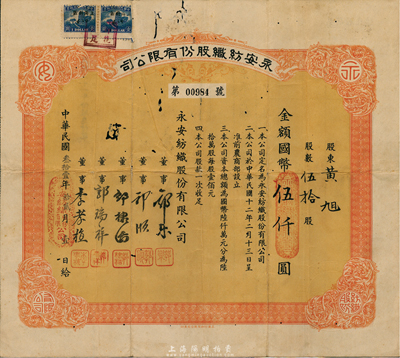 永安紡織股份有限公司
第 00984 號
股東 黃旭
股數 伍拾 股
金額國幣 伍仟 圓
一本公司定名為永安紡織股份有限公司
二本公司於中華民國十二年二月十三日呈
准前農商部設立
三本公司資本總額為國幣陸仟萬元分為陸
拾萬股每股壹佰元
四本公司股款一次收足
永安紡織股份有限公司
董事
董事
董事
董事 郭瑞祥
董事
中華民國
年
月
日給